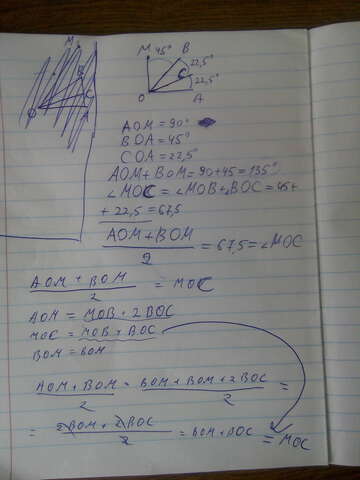 M
B
C
A
O
M 45° B
22,5°
C
22,5°
O A
AOM = 90°
BOA = 45°
COA = 22,5°
AOM + BOM = 90 + 45 = 135°
∠MOC = ∠MOB + ∠BOC = 45 +
+ 22,5 = 67,5
AOM + BOM
2
= 67,5 = ∠MOC
AOM + BOM
2
= MOC
AOM = MOB + 2BOC
MOC = MOB + BOC
BOM = BOM
AOM + BOM / 2 = BOM + BOM + 2BOC / 2 =
= 2BOM + 2BOC / 2 = BOM + BOC = MOC